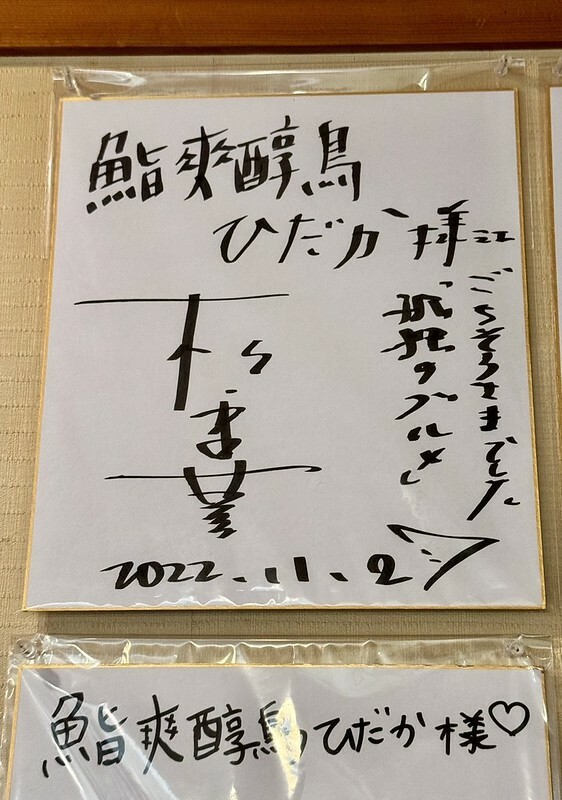 鮨爽醇鳥
ひだか様江
ごちそうさまでした
「孤独のグルメ」
松重豊
2022.11.2
鮨爽醇鳥ひだか様♡